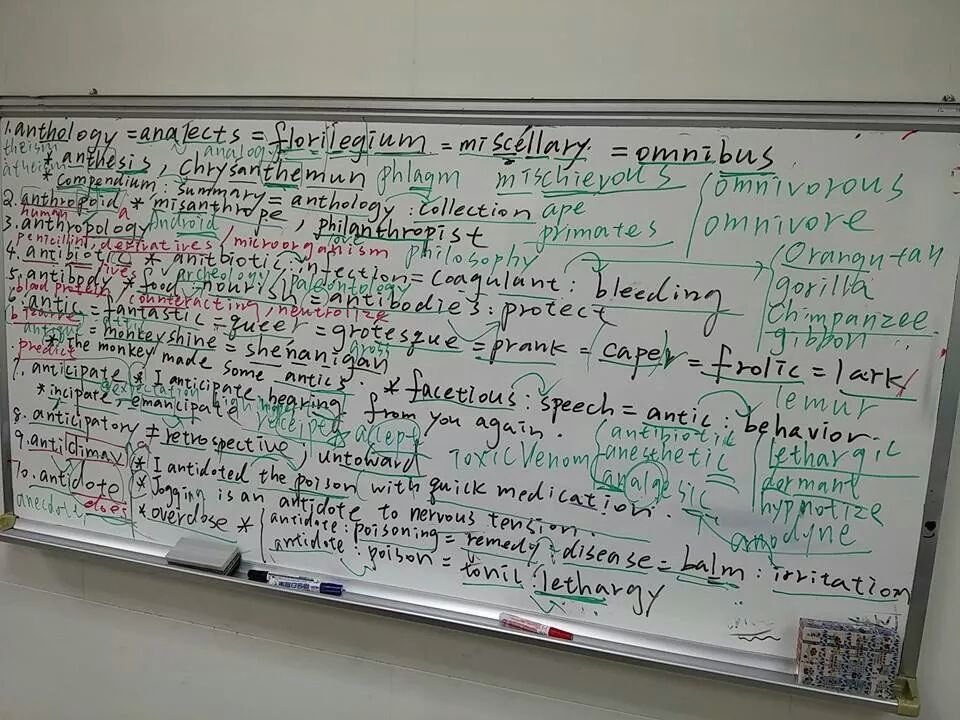 1. anthology = analects = florilegium = miscellary = omnibus
theism
analogy
atheism * anthesis, chrysanthemun phlagm mischievous omnivorous
* compendium : summary = anthology : collection ape omnivore
2. anthropoid * misanthrope, philanthropist primates
human a Android
3. anthropology
penicillin, derivatives microorganism philosophy Orangutan
4. antibiotic * antibiotic : infection = coagulant : bleeding gorilla
archeology paleontology
5. antibody * food : nourish = antibodies : protect chimpanzee
blood protein counteracting neutralize gibbon
6. antic = fantastic = queer = grotesque = prank = caper = frolic = lark
bizarre
antique = monkeyshine = shenanigan gross lemur
* the monkey made some antics. * facetious : speech = antic : behavior.
predict
7. anticipate * I anticipate hearing from you again.
expectation
* incipate, emancipate receipt accept antibiotic
8. anticipatory ≠ retrospective, untoward Toxic Venom anesthetic lethargic
9. anticlimax * I antidoted the poison with quick medication. analgesic dormant
10. antidote * Jogging is an antidote to nervous tension. hypnotize
anecdote * overdose * antidote : poisoning = remedy : disease = balm : irritation anodyne
antidote : poison = tonic : lethargy